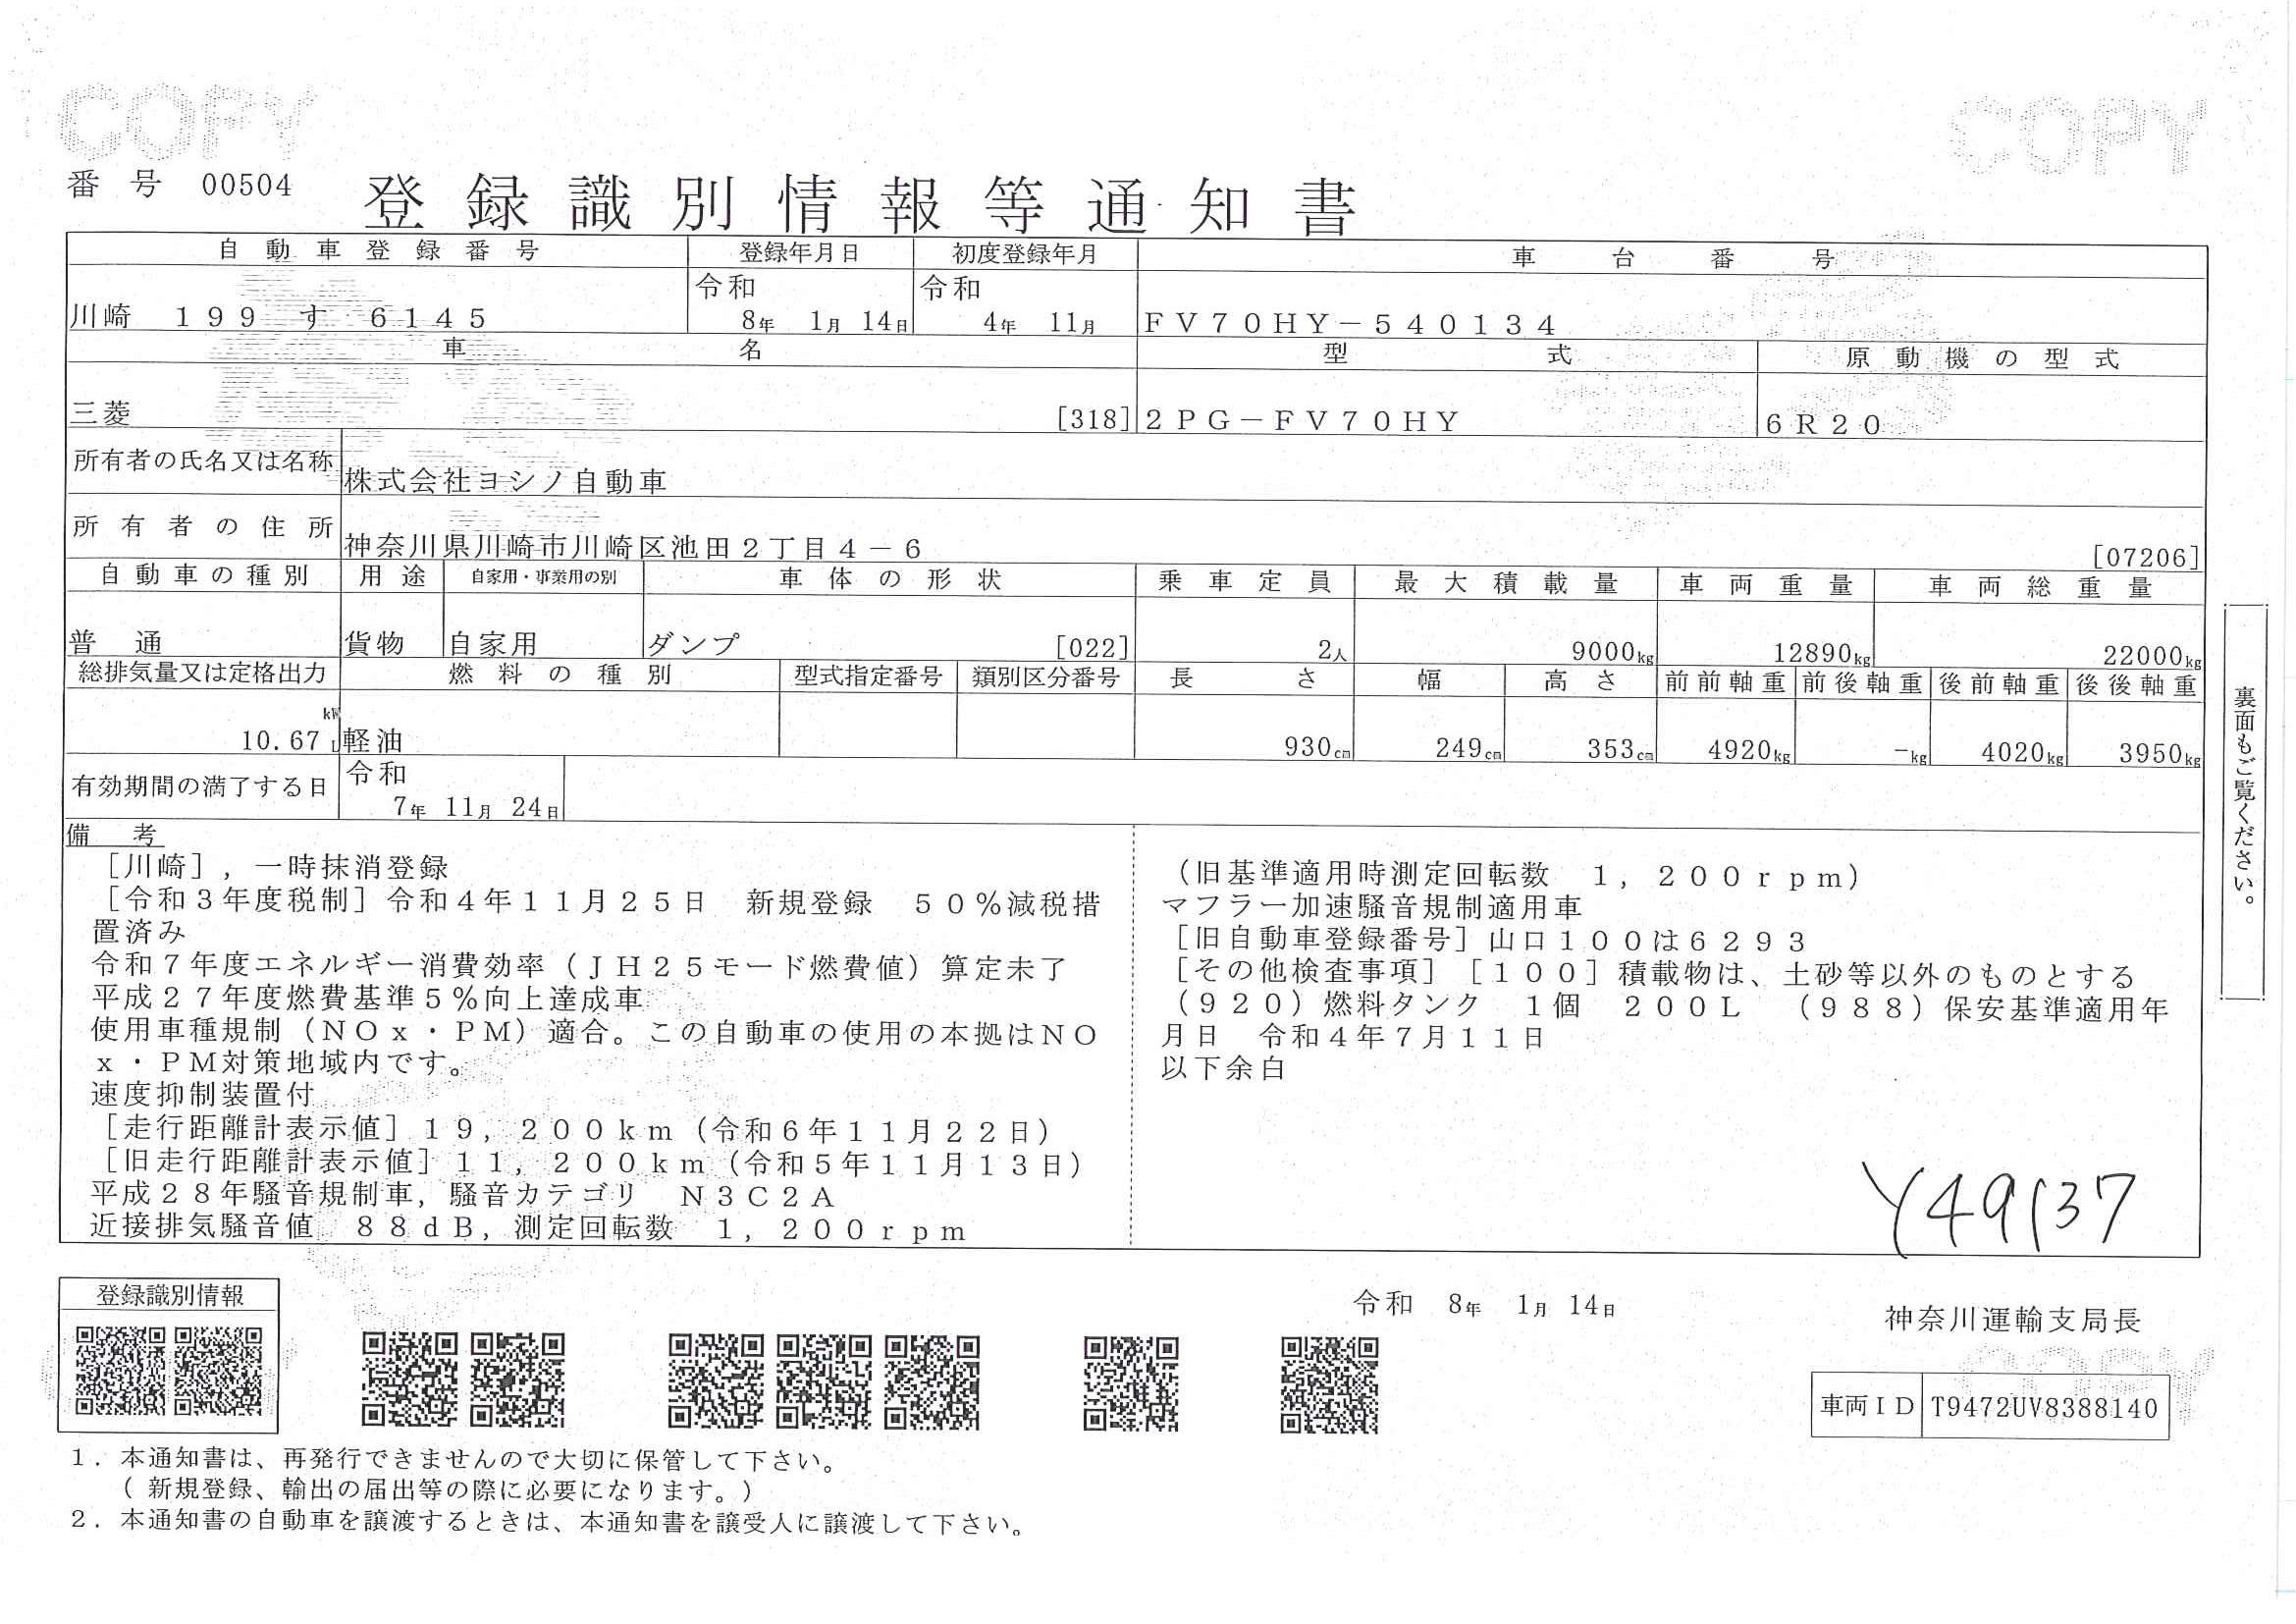 COPY COPY
番号 00504 登録識別情報等通知書
自動車登録番号 登録年月日 初度登録年月 車台番号
令和 令和
川崎 199 す 6145 8年 1月 14日 4年 11月 FV70HY-540134
車名 型式 原動機の型式
三菱 [318] 2PG-FV70HY 6R20
所有者の氏名又は名称 株式会社ヨシノ自動車
所有者の住所 神奈川県川崎市川崎区池田2丁目4-6 [07206]
自動車の種別 用途 自家用・事業用の別 車体の形状 乗車定員 最大積載量 車両重量 車両総重量
普通 貨物 自家用 ダンプ [022] 2人 9000kg 12890kg 22000kg
総排気量又は定格出力 燃料の種別 型式指定番号 類別区分番号 長さ 幅 高さ 前前軸重 前後軸重 後前軸重 後後軸重
kW
10.67 L 軽油 930cm 249cm 353cm 4920kg -kg 4020kg 3950kg
有効期間の満了する日 令和
7年 11月 24日
備考
[川崎],一時抹消登録
[令和3年度税制]令和4年11月25日 新規登録 50%減税措
置済み
令和7年度エネルギー消費効率(JH25モード燃費値)算定未了
平成27年度燃費基準5%向上達成車
使用車種規制(NOx・PM)適合。この自動車の使用の本拠はNO
x・PM対策地域内です。
速度抑制装置付
[走行距離計表示値]19,200km(令和6年11月22日)
[旧走行距離計表示値]11,200km(令和5年11月13日)
平成28年騒音規制車,騒音カテゴリ N3C2A
近接排気騒音値 88dB,測定回転数 1,200rpm
(旧基準適用時測定回転数 1,200rpm)
マフラー加速騒音規制適用車
[旧自動車登録番号]山口100は6293
[その他検査事項][100]積載物は、土砂等以外のものとする
(920)燃料タンク 1個 200L (988)保安基準適用年
月日 令和4年7月11日
以下余白
Y49137
裏面もご覧ください。
登録識別情報
令和 8年 1月 14日
神奈川運輸支局長
COPY
車両ID T9472UV8388140
1.本通知書は、再発行できませんので大切に保管して下さい。
(新規登録、輸出の届出等の際に必要になります。)
2.本通知書の自動車を譲渡するときは、本通知書を譲受人に譲渡して下さい。